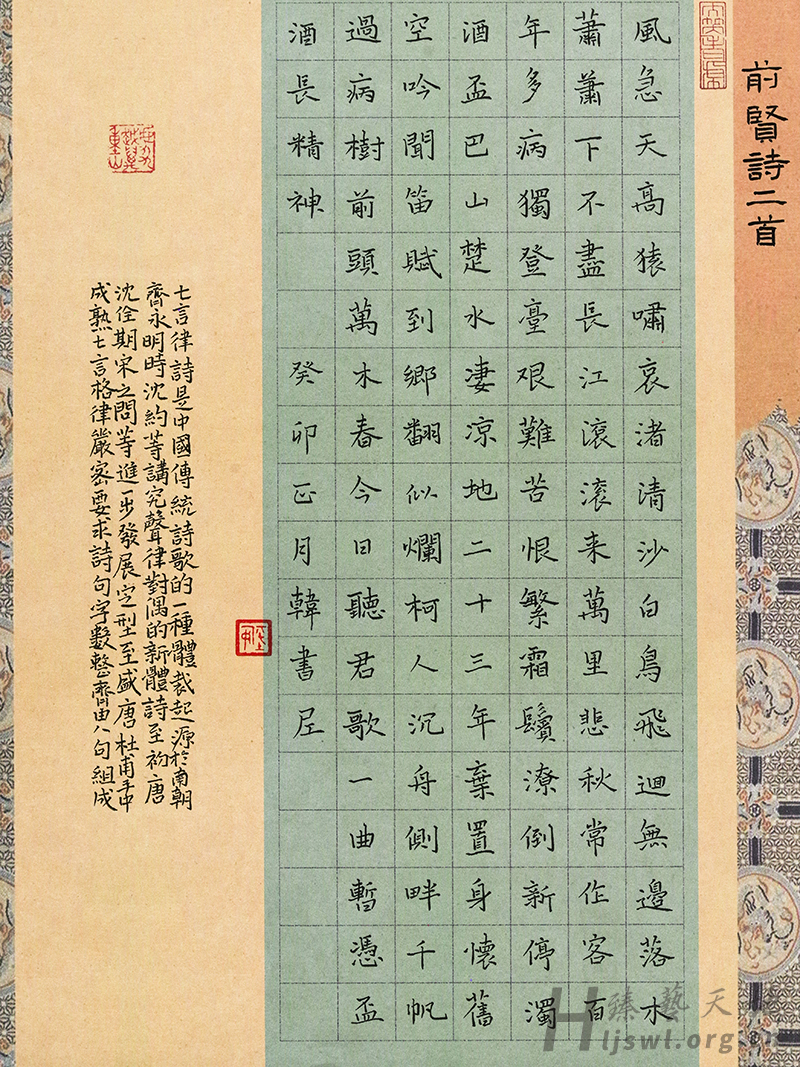 前賢詩二首
風急天高猿嘯哀渚清沙白鳥飛迴無邊落木
蕭蕭下不盡長江滾滾来萬里悲秋常作客百
年多病獨登臺艰難苦恨繁霜鬢潦倒新停濁
酒盃巴山楚水凄凉地二十三年棄置身懷舊
空吟聞笛賦到鄉翻似爛柯人沉舟側畔千帆
過病樹前頭萬木春今日聽君歌一曲暫憑盃
酒長精神 癸卯正月韓書
七言律詩是中國傳統詩歌的一種體裁起源於南朝
齊永明時沈約等講究聲律對偶的新體詩至初唐
沈佺期宋之問等進一步發展定型至盛唐杜甫手中
成熟七言格律嚴密要求詩句字數整齊由八句組成
臻藝天
ljswl.org